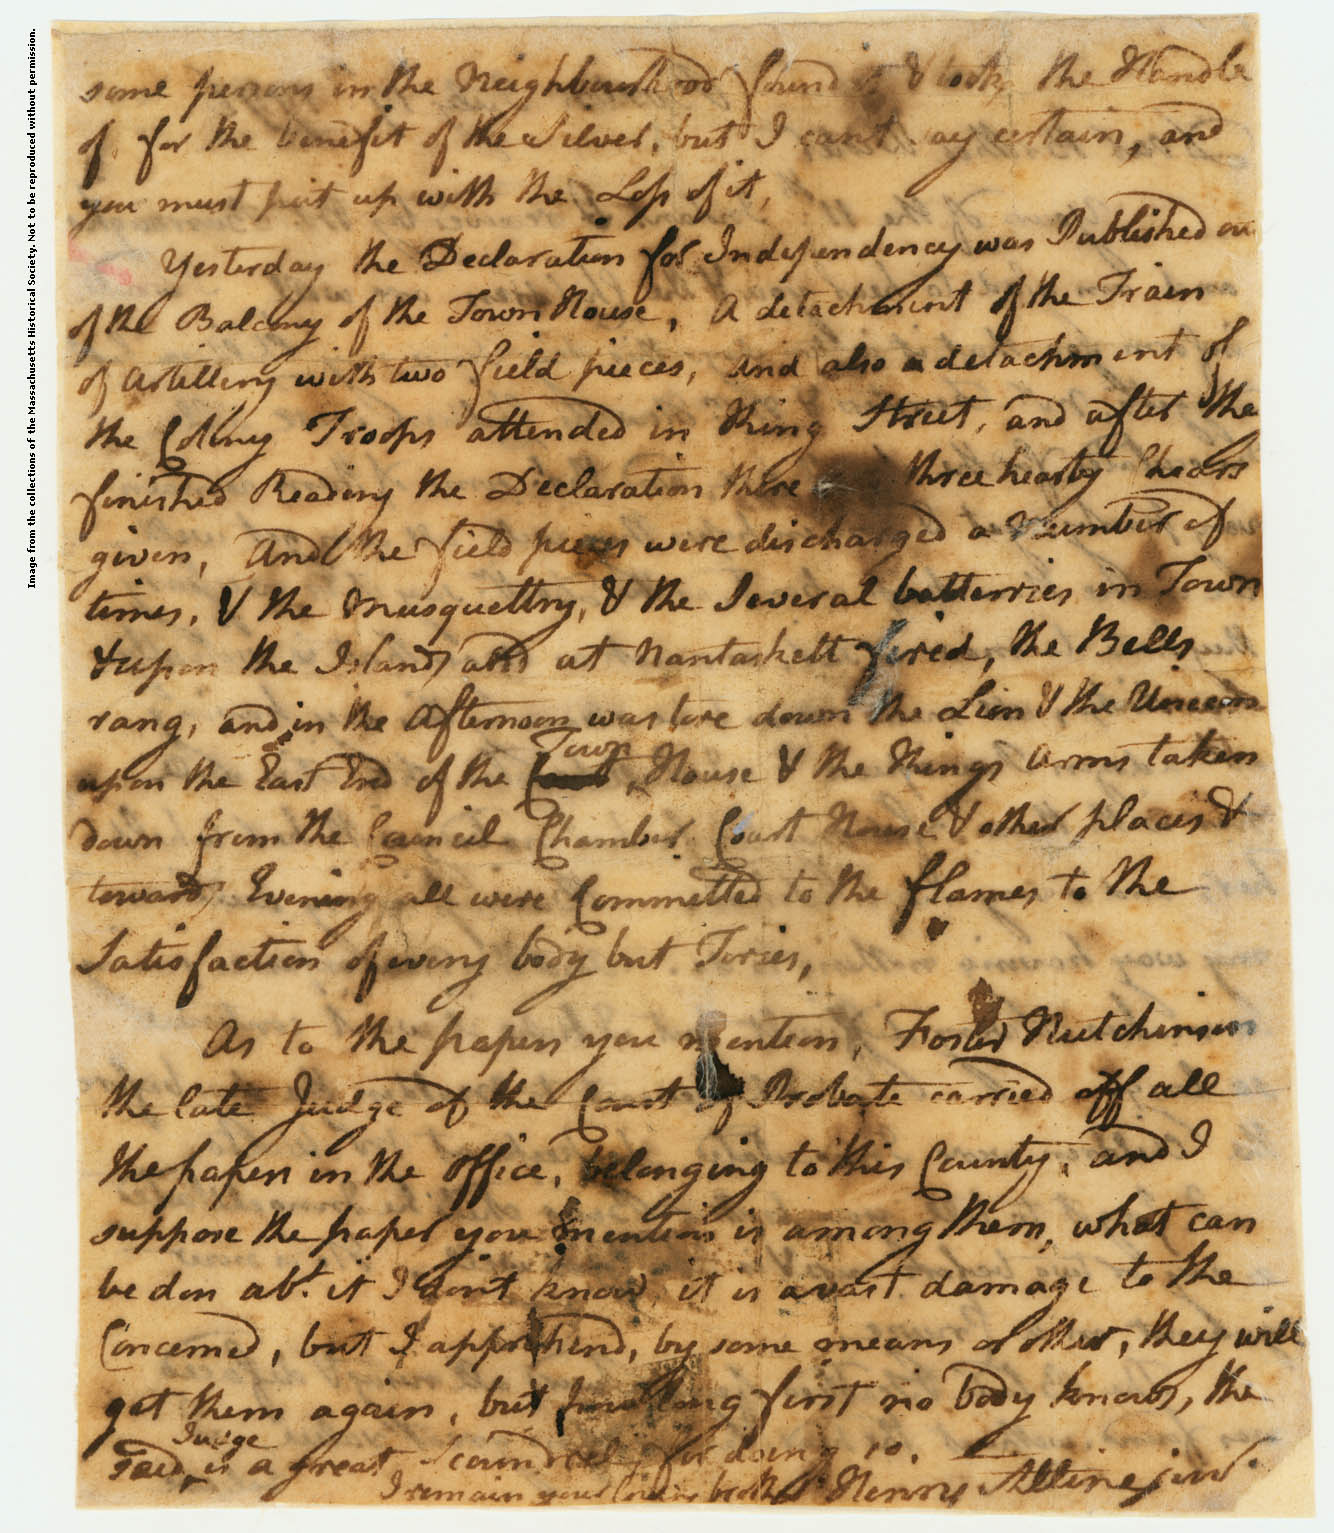 Image from the collections of the Massachusetts Historical Society. Not to be reproduced without permission.
some persons in the Neighbourhood found it & took the Handle
of for the benefit of the Silver, but I cant say certain, and
you must put up with the Loss of it,
Yesterday the Declaration for Independency was Published out
of the Balcony of the Town House, A detachment of the Train
of Artillery with two field pieces, and also a detachment of
the Colony Troops attended in King Street, and after the
finished Reading the Declaration there three hearty Chears
given, And the field pieces were discharged a Number of
times, & the Musquettry, & the Several batterries in Town
& upon the Islands and at Nantaskett fired, the Bells
rang, and in the Afternoon was tore down the Lion & the Unicorn
upon the East End of the Town House & the Kings Arms taken
down from the Council Chamber Court House & other places &
towards Evening all were Committed to the flames to the
Satisfaction of every body but Tories,
As to the papers you mention, Foster Hutchinson
the late Judge of the Court of Probate carried off all
the papers in the office, belonging to this County, and I
suppose the paper you mention is among them, what can
be don abt. it I don't know, it is a vast damage to the
Concerned, but I apprehend, by some means or other, they will
get them again, but how long first no body knows, the
said Judge is a great Scoundrel for doing so.
I remain your loving brother Henry Alline junr.